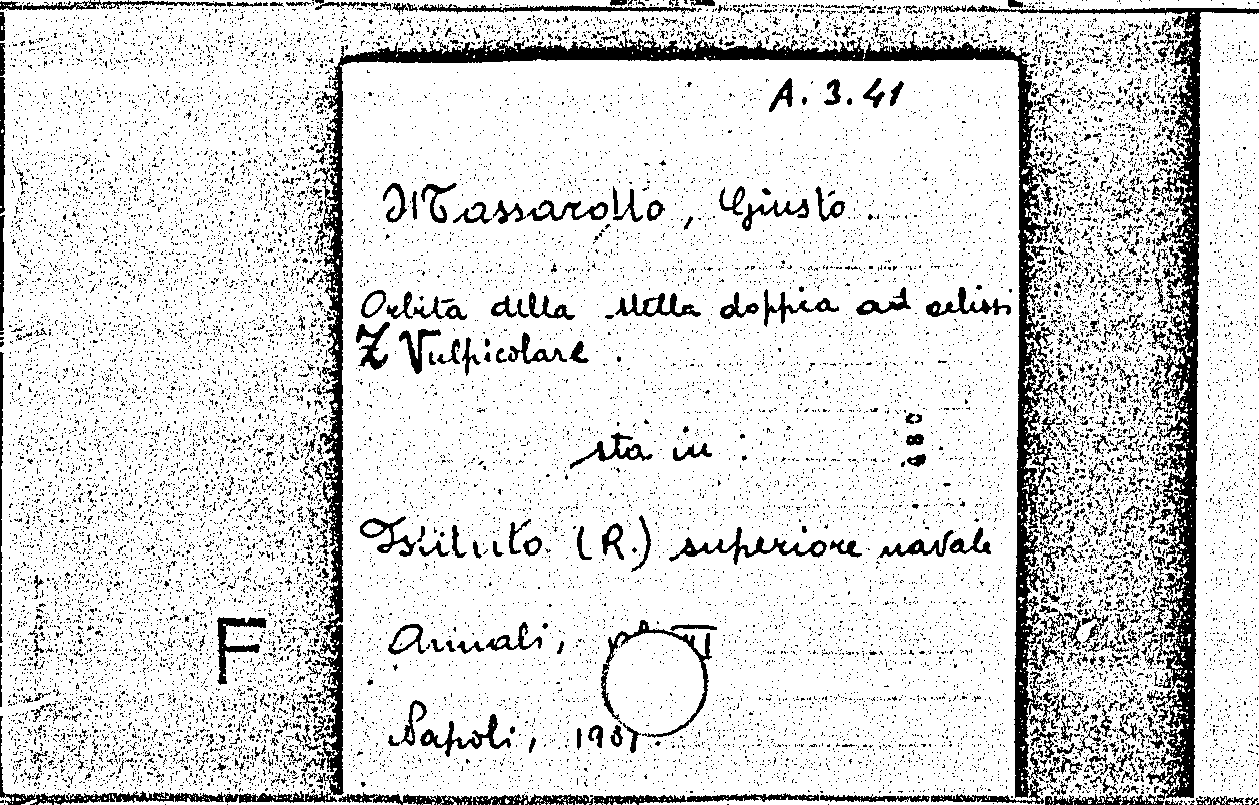 A. 3. 41
Massarotto, Giusto.
Orbita della stella doppia ad eclissi
Z Vulpicolare.
sta in :
Istituto (R.) superiore navale
F
Annali,
Napoli,